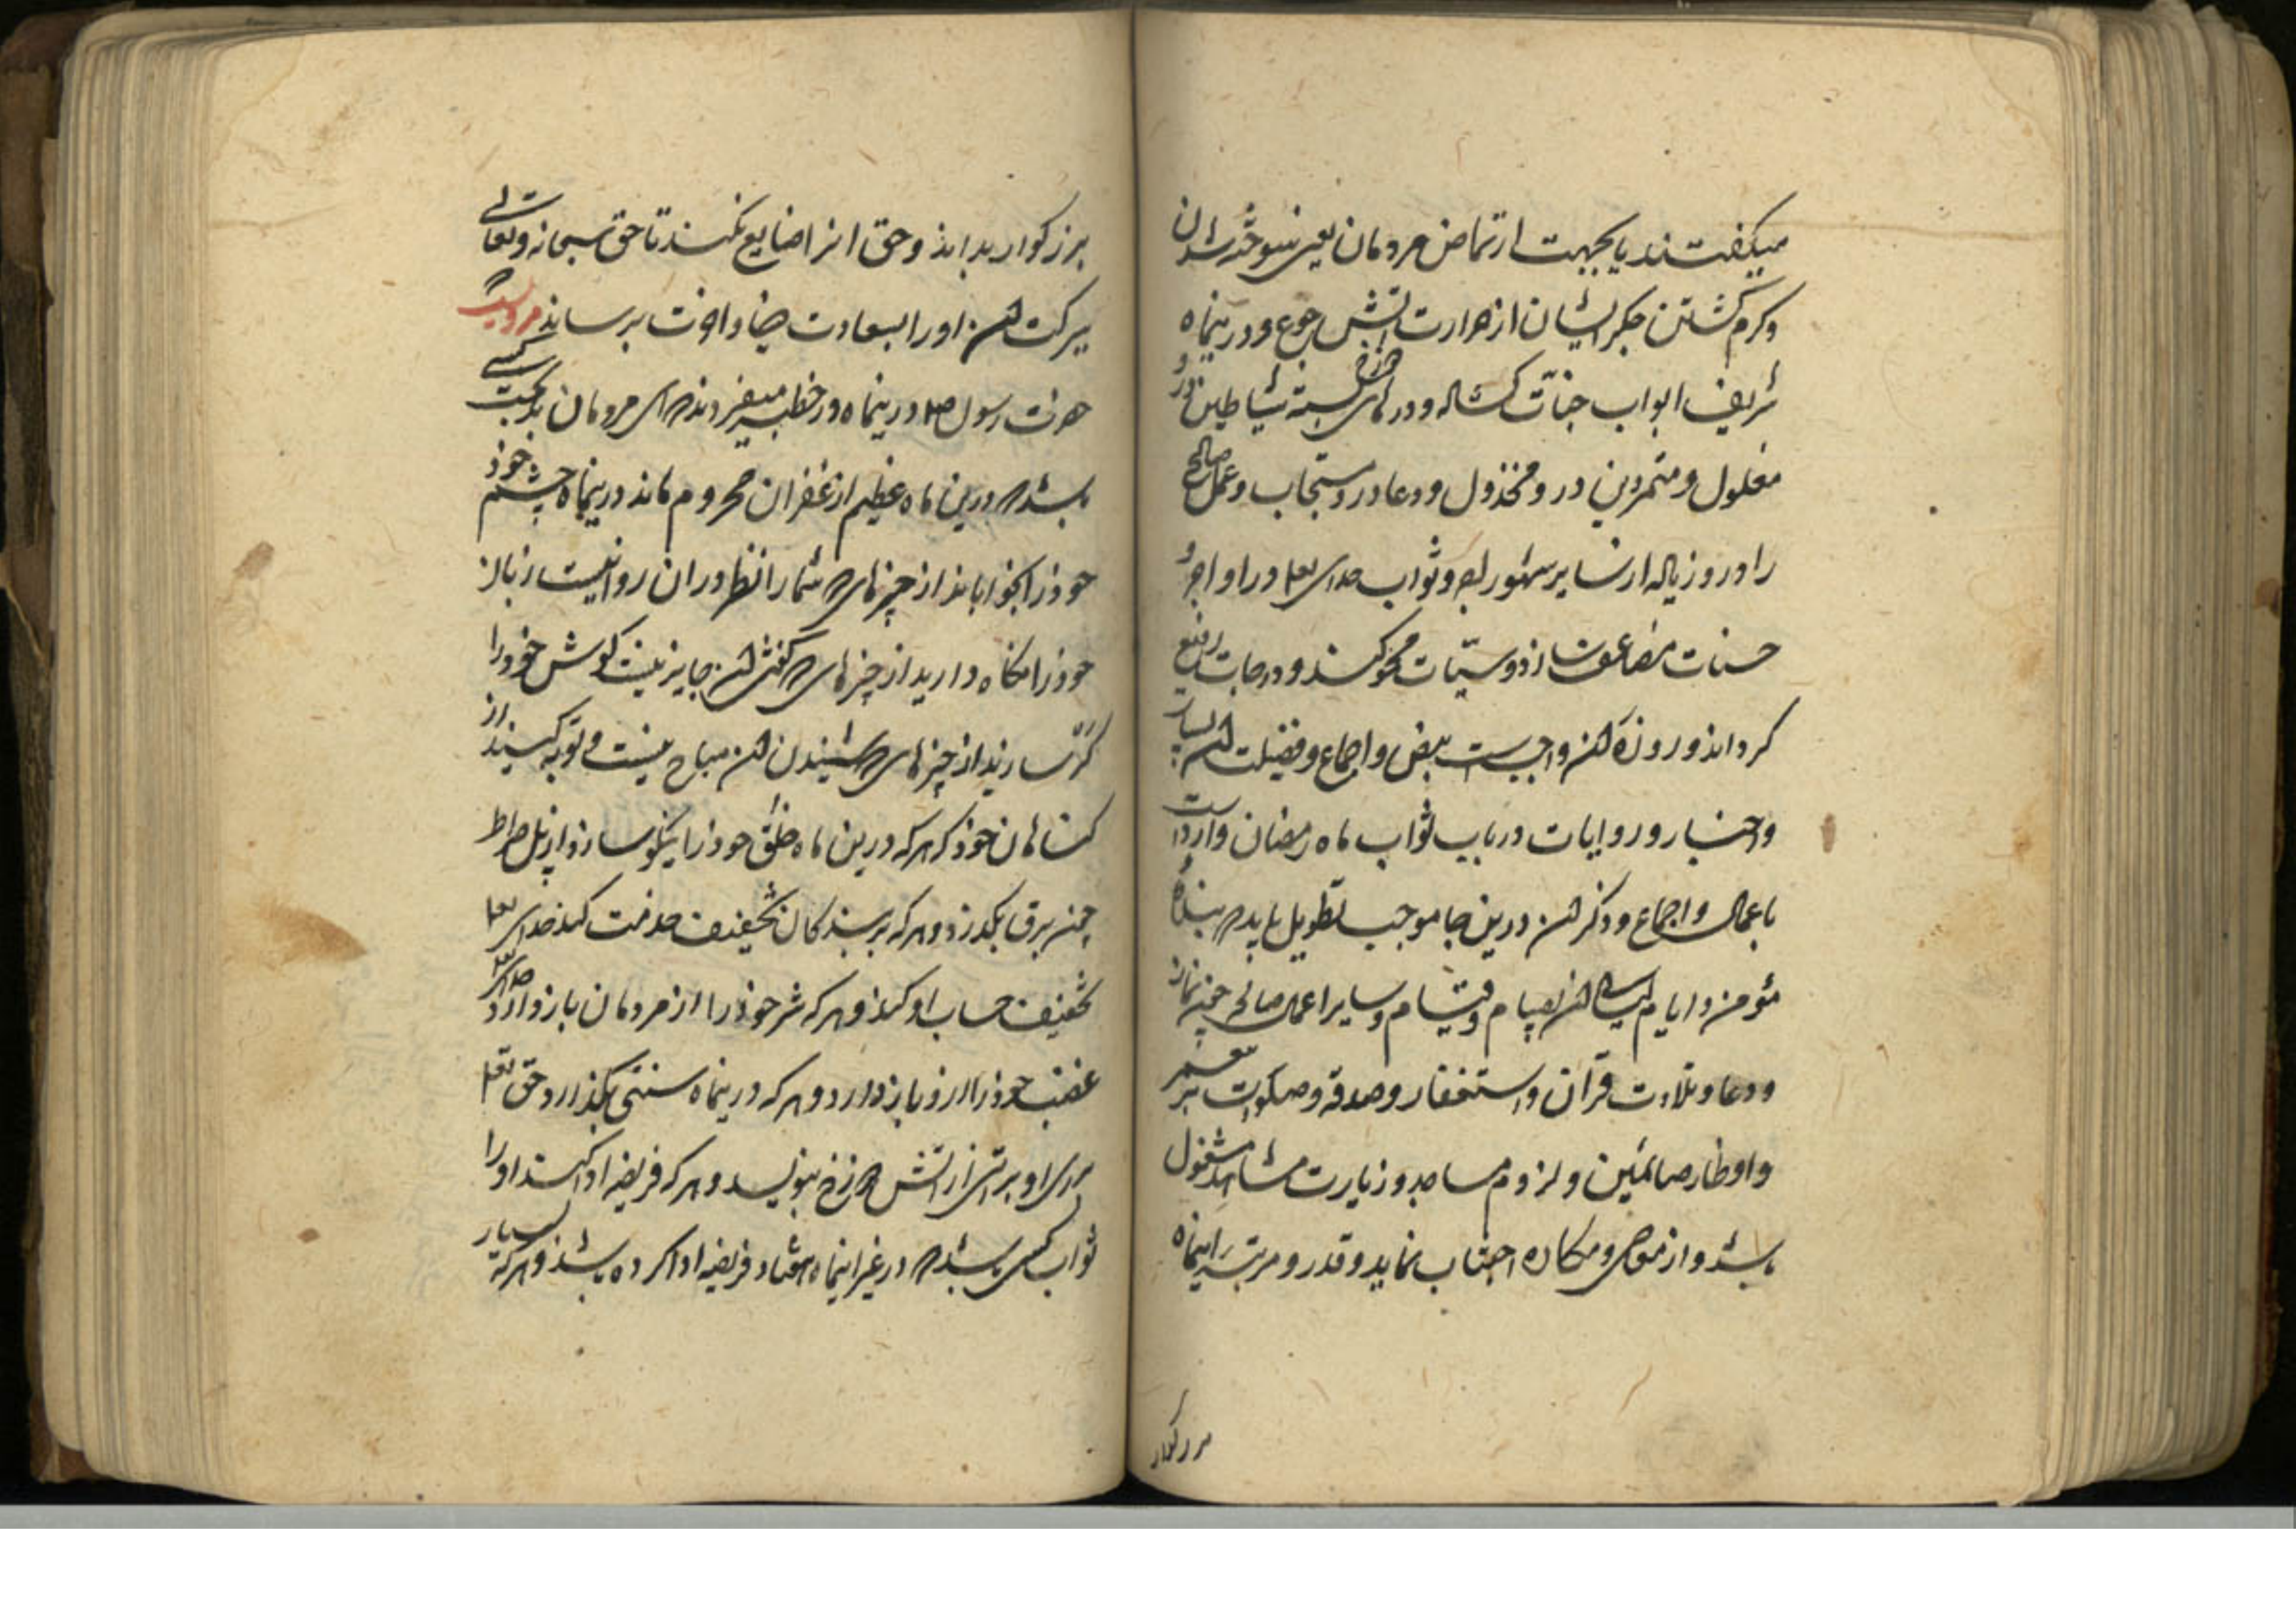 میکفتند یا بجهت ارتماض مردمان یعنی سوخته شدن
و کرم کشتن جکر ایشان از حرارت آتش جوع و درینماه
شریف ابواب جنات کشاده و درهای دوزخ بسته شیاطین درو
مغلول و متمردین درو مخذول و دعا درو مستجاب و عمل صالح
را درو زیاده از سایر شهور اجر و ثواب خدای تعالی درو اجر و
حسنات مضاعف سازد و سیئات محو کند و درجات رفیع
کرداند و روزه آن واجبست بنص و اجماع و فضیلت آن بسیار
و اخبار و روایات در باب ثواب ماه رمضان وارد است
و ذکر آن درین جا موجب تطویل باید که بنده
مؤمن در ایام و لیالی آن بصیام و قیام و سایر اعمال صالح چون نماز
و دعا و تلاوت قرآن و استغفار و صدقه و صلوات بر پیغمبر
و افطار صائمین و لزوم مساجد و زیارت مشاهد مشغول
باشد و از معاصی و مکاره اجتناب نماید و قدر و مرتبه اینماه را
بزرکوار
بزرکوار بداند و حق انرا ضایع نکند تا حق سبحانه و تعالی
ببرکت آن او را بسعادت دنیا و اخرت برساند مرویست که
حضرت رسول صلعم درینماه در خطبه میفرمودند که ای مردمان بدبخت کسی
باشد که درین ماه عظیم از غفران محروم ماند درینماه چشم خود
خود را بخوابانید از چیزهای که شما را نظر در آن روا نیست زبان
خود را نکاه دارید از چیزهای که کفتن آن جایز نیست کوش خود را
کر سازید از چیزهای که شنیدن آن مباح نیست و توبه کنید از
کناهان خود که هر که درین ماه خلق خود را نیکو سازد از پل صراط
چون برق بکذرد و هر که بر بندکان تخفیف خدمت کند خدای تعالی
تخفیف حساب او کند و هر که شر خود را از مردمان باز دارد خدای تعالی
غضب خود را ازو باز دارد و هر که درینماه سنتی بکذارد حق تعالی
برای او براتی از آتش دوزخ بنویسد و هر که فریضه ادا کند او را
ثواب کسی باشد که در غیر اینماه هفتاد فریضه ادا کرده باشد و هر که بسیار